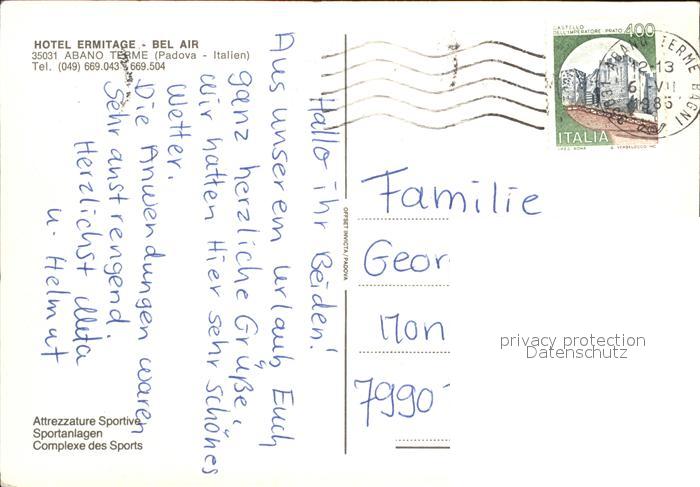 HOTEL ERMITAGE - BEL AIR
35031 ABANO TERME (Padova - Italien)
Tel. (049) 669.043 669.504
Hallo ihr Beiden!
Aus unserem Urlaub Euch
ganz herzliche Grüße,
wir hatten Hier sehr schönes
Wetter.
Die Anwendungen waren
Sehr anstrengend.
Herzlichst Meta
u. Helmut
Attrezzature Sportive
Sportanlagen
Complexe des Sports
OFFSET INVICTA/PADOVA
CASTELLO
DELL'IMPERATORE PRATO
400
ITALIA
ABANO TERME BAGNI
12-13
6-VII
1986
Familie
Geor
Mon
7990
privacy protection
Datenschutz